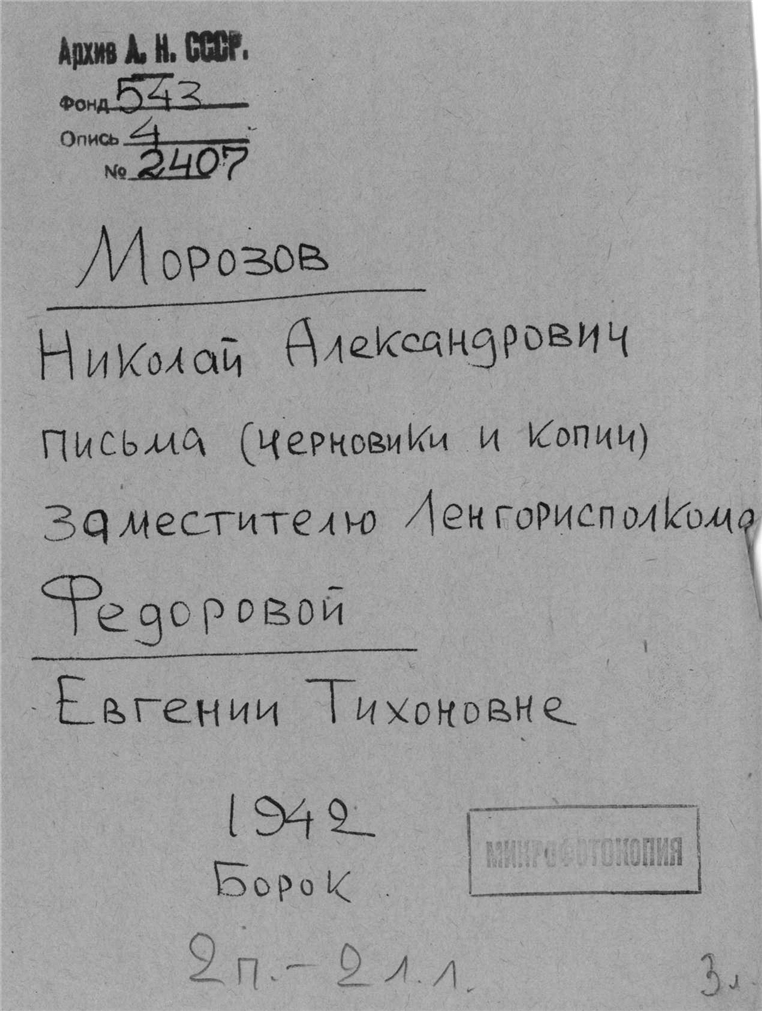 Архив А. Н. СССР.
Фонд 543
Опись 4
№ 2407
Морозов
Николай Александрович
письма (черновики и копии)
Заместителю Ленгорисполкома
Федоровой
Евгении Тихоновне
1942
Борок
МИКРОФОТОКОПИЯ
2 п. – 2 л.л.
3 л.